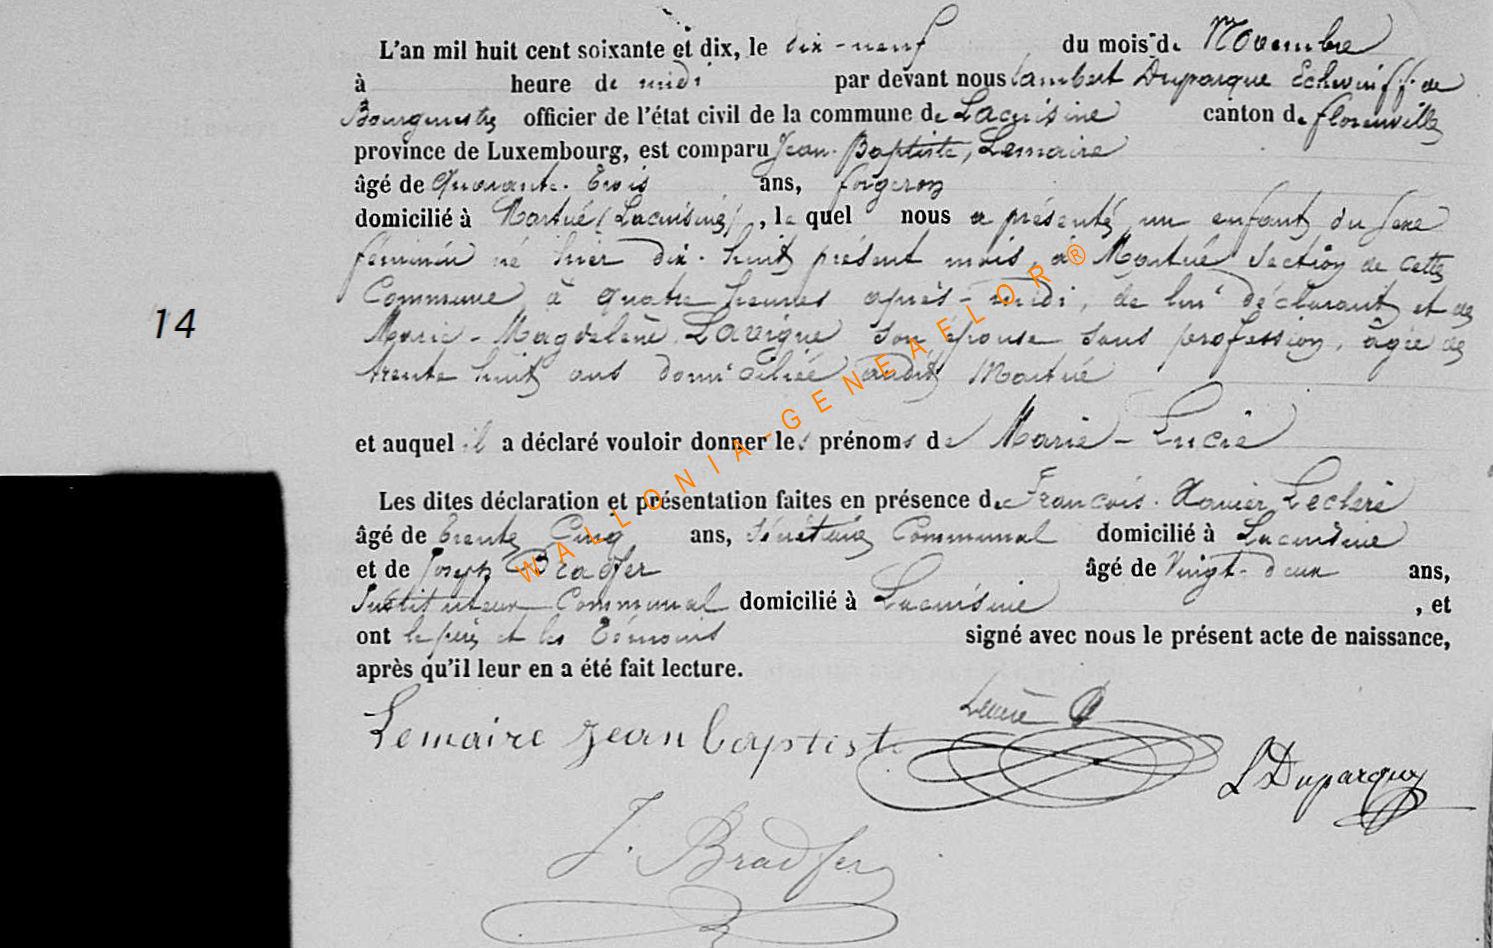 L'an mil huit cent soixante et dix, le dix-neuf du mois de Novembre
à heure de midi par devant nous Lambert Duparque Echevin ff. de
Bourgmestre officier de l'état civil de la commune de Lacuisine canton de florenville
province de Luxembourg, est comparu Jean-Baptiste, Lemaire
âgé de Quarante-trois ans, forgeron
domicilié à Martué (Lacuisine), le quel nous a présenté un enfant du sexe
féminin né hier dix-huit présent mois, à Martué section de cette
14
Commune à quatre heures après-midi, de lui déclarant et de
Marie-Magdeleine Lavigne son épouse sans profession, âgée de
trente huit ans domiciliée audit Martué
et auquel il a déclaré vouloir donner les prénoms de Marie-Lucie
Les dites déclaration et présentation faites en présence de François-Xavier Leclere
âgé de trente Cinq ans, secrétaire Communal domicilié à Lacuisine
et de Joseph Bradfer âgé de Vingt-deux ans,
Instituteur Communal domicilié à Lacuisine, et
ont le père et les témoins signé avec nous le présent acte de naissance,
après qu'il leur en a été fait lecture.
Lemaire Jean baptiste
L Duparque
J. Bradfer
WALLONIA-GENEALOR®